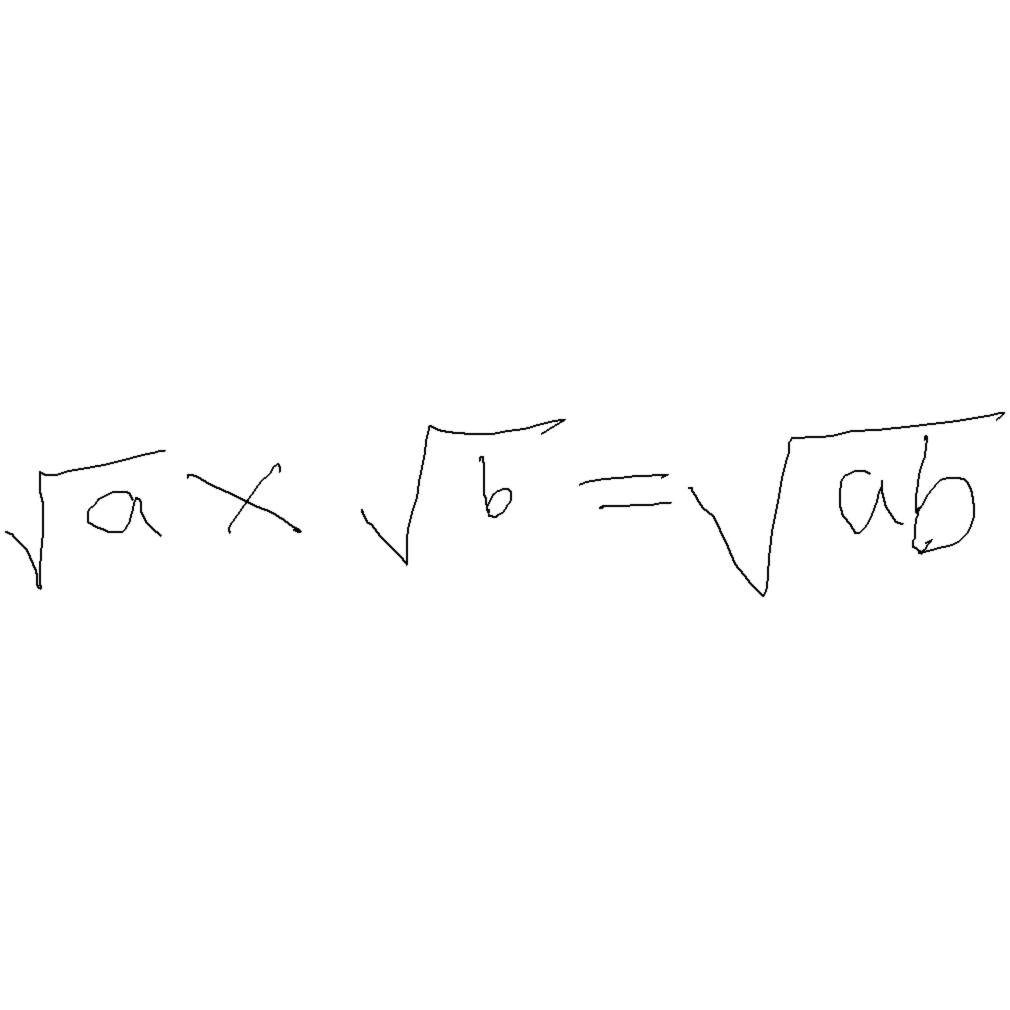 √a × √b = √ab